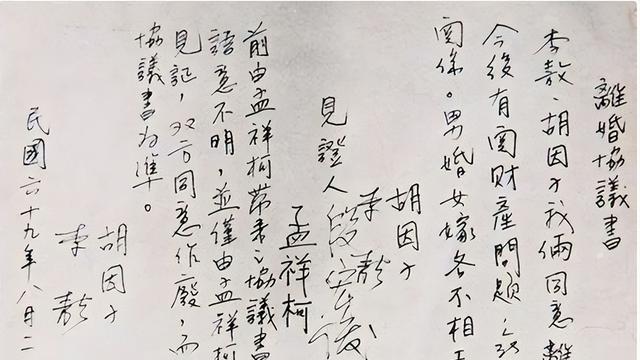 離婚協議書
李敖、胡因子我倆同意離
今後有関財產問題
関係。男婚女嫁各不相
胡因子
李敖
見證人
孟祥柯
前由孟祥柯帶來之協議書
語意不明，並僅由孟祥柯
見証，双方同意作廢，而
協議書為準。
胡因子
李敖
民國六十九年八月二